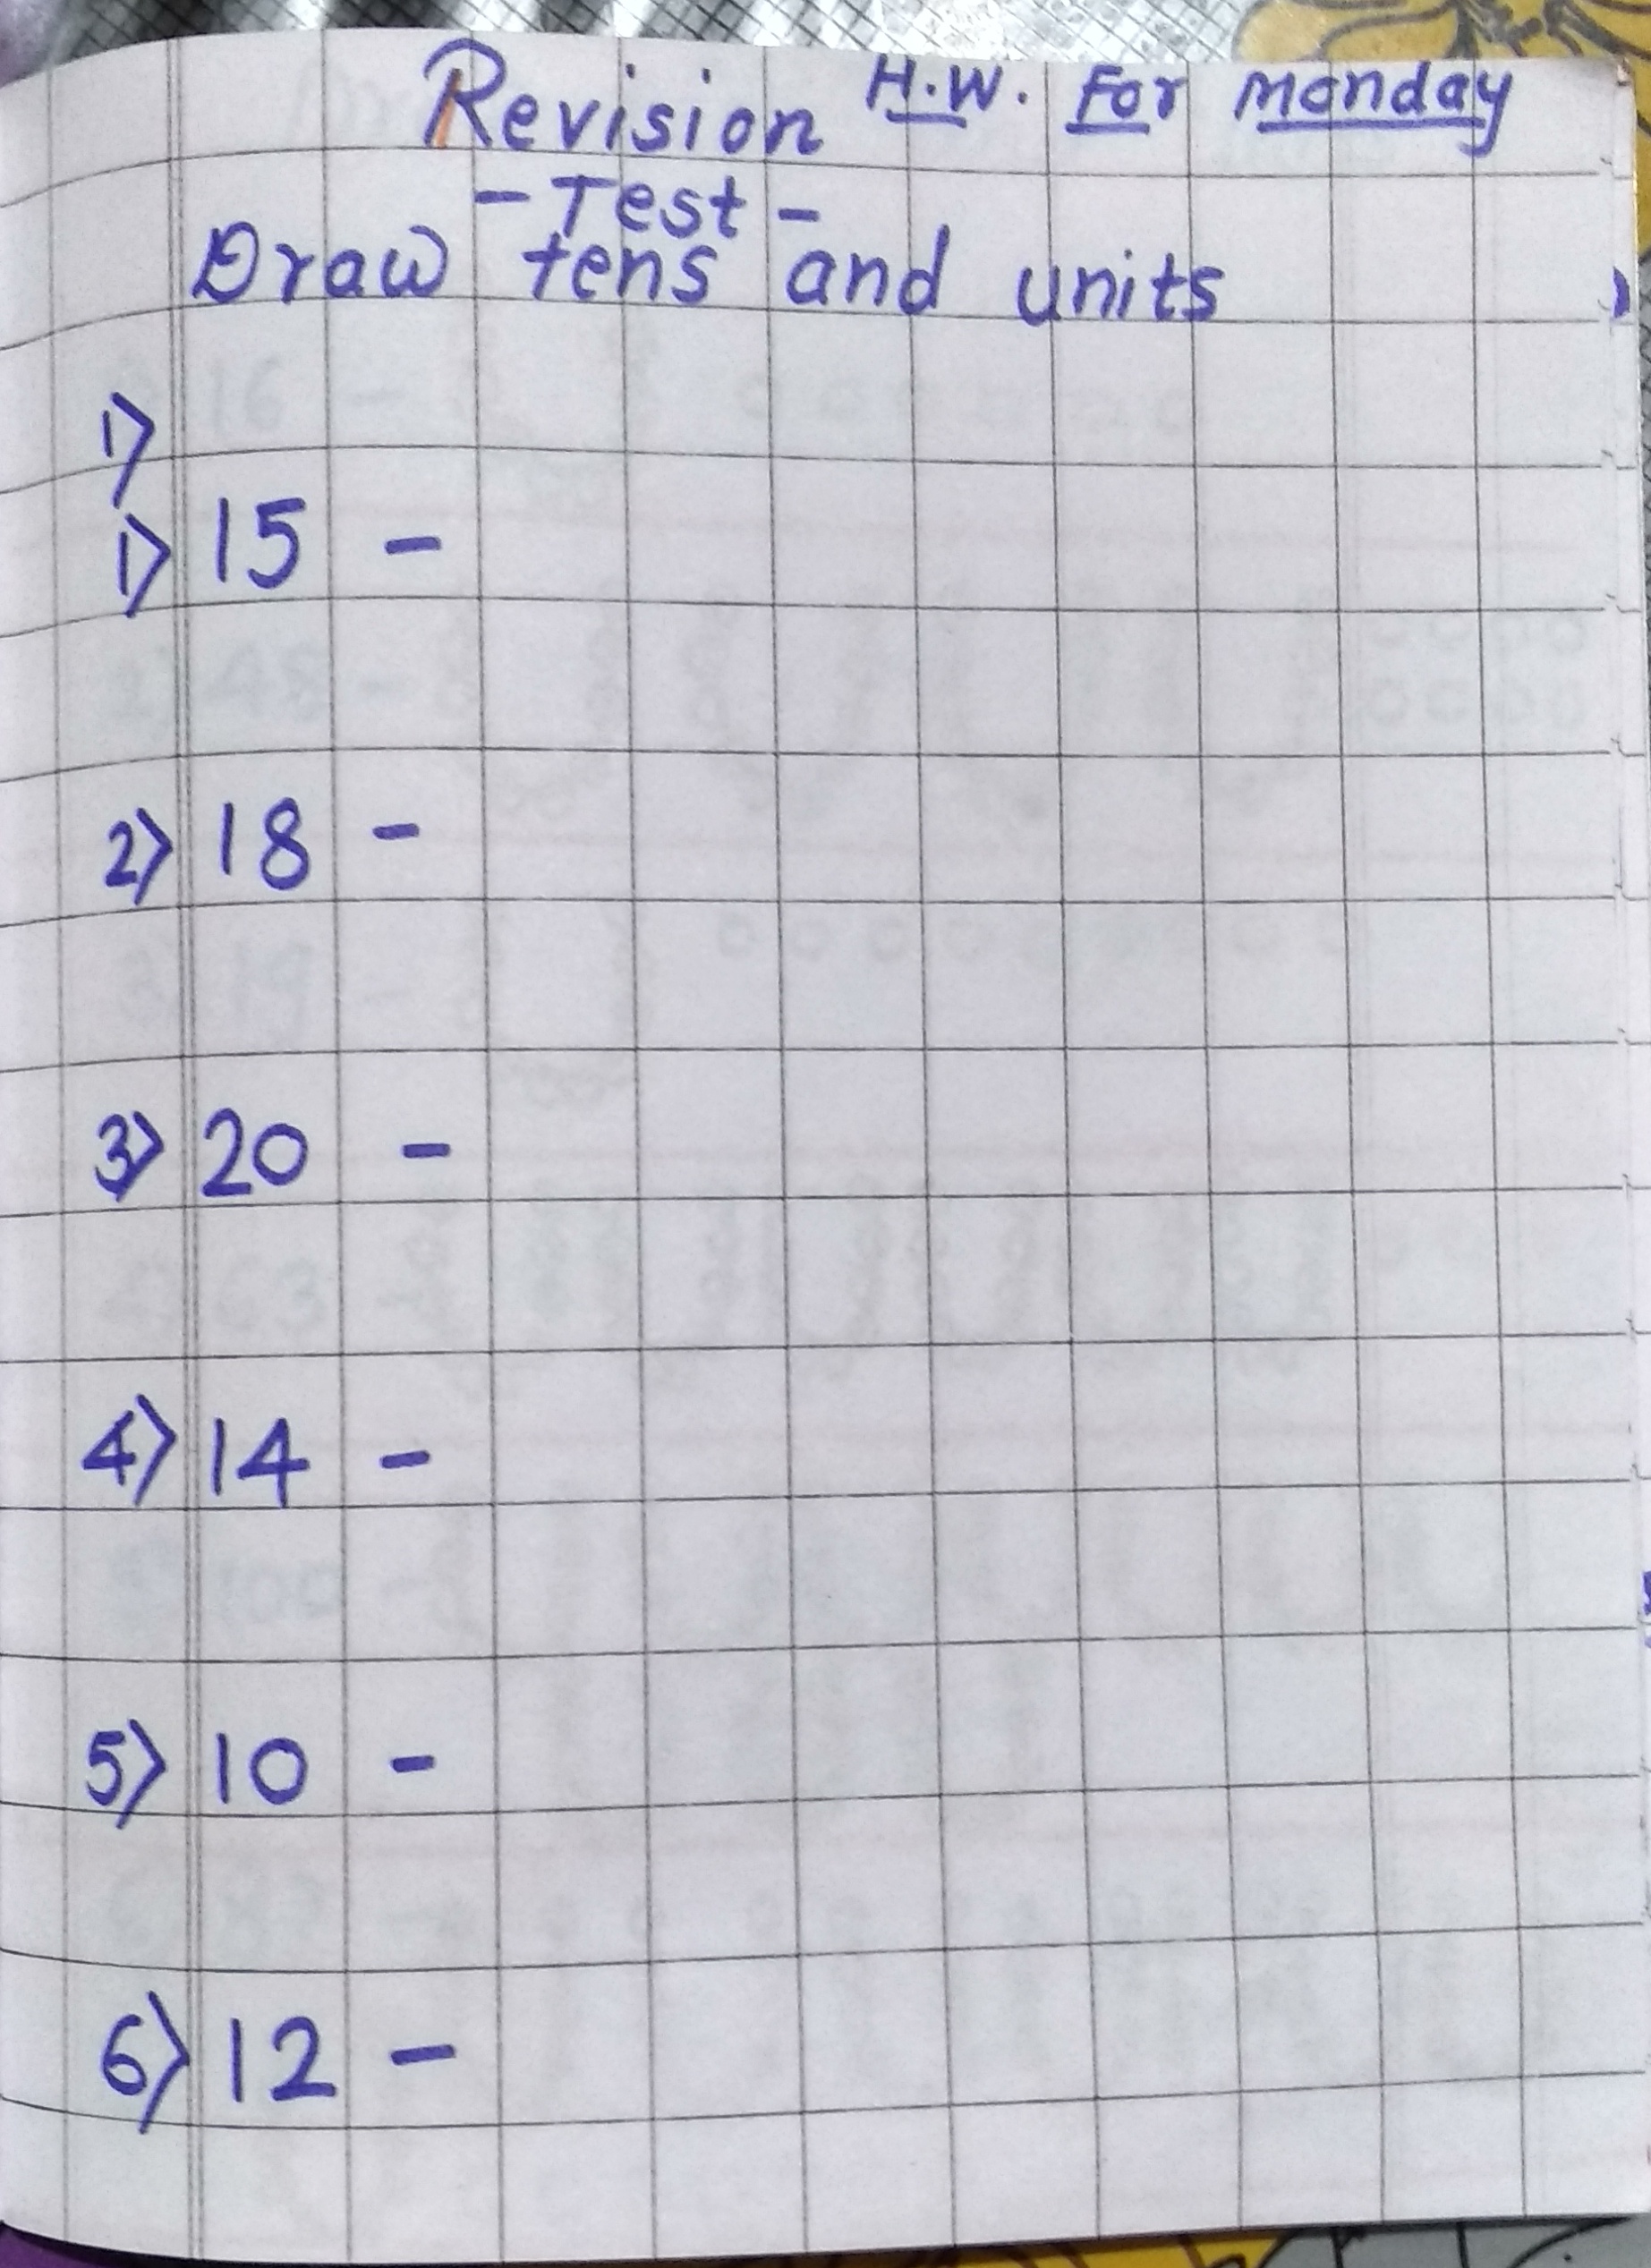 Revision H.W. For Monday
- Test -
Draw tens and units
1)
1) 15 -
2) 18 -
3) 20 -
4) 14 -
5) 10 -
6) 12 -